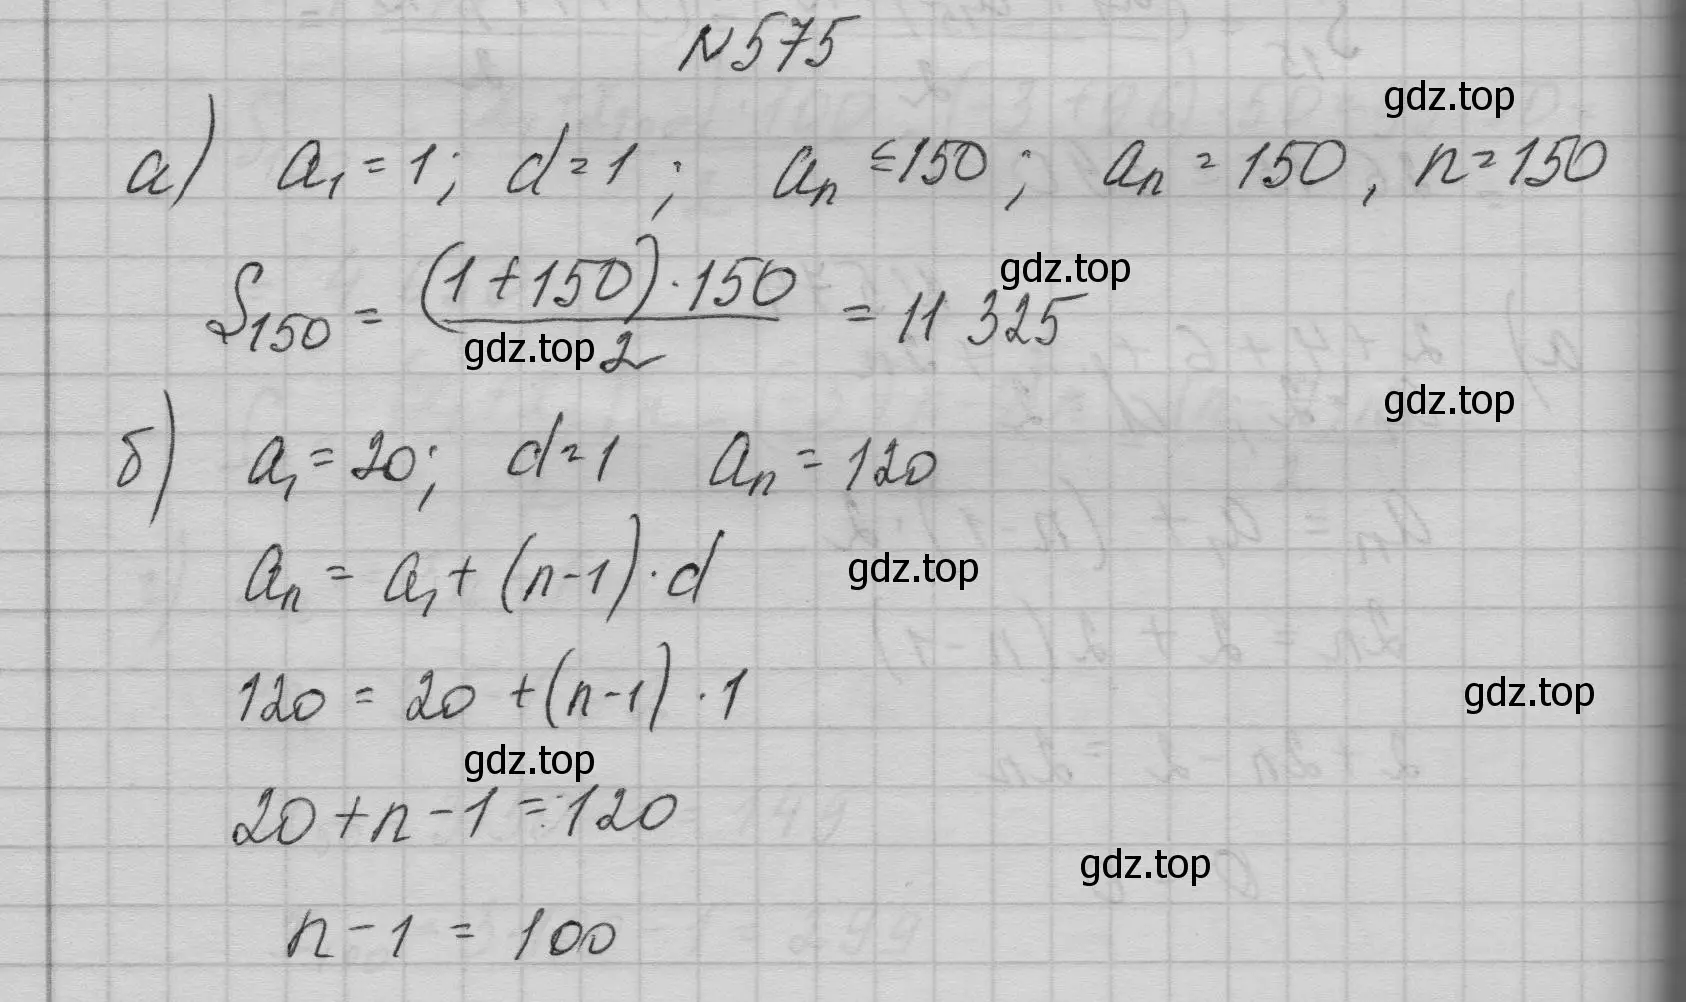 N575
gdz.top
а) a₁ = 1; d = 1; aₙ ≤ 150; aₙ = 150, n = 150
S₁₅₀ = (1 + 150) · 150 / 2 = 11 325
gdz.top
gdz.top
gdz.top
б) a₁ = 20; d = 1 aₙ = 120
aₙ = a₁ + (n - 1) · d
gdz.top
120 = 20 + (n - 1) · 1
gdz.top
gdz.top
20 + n - 1 = 120
gdz.top
n - 1 = 100